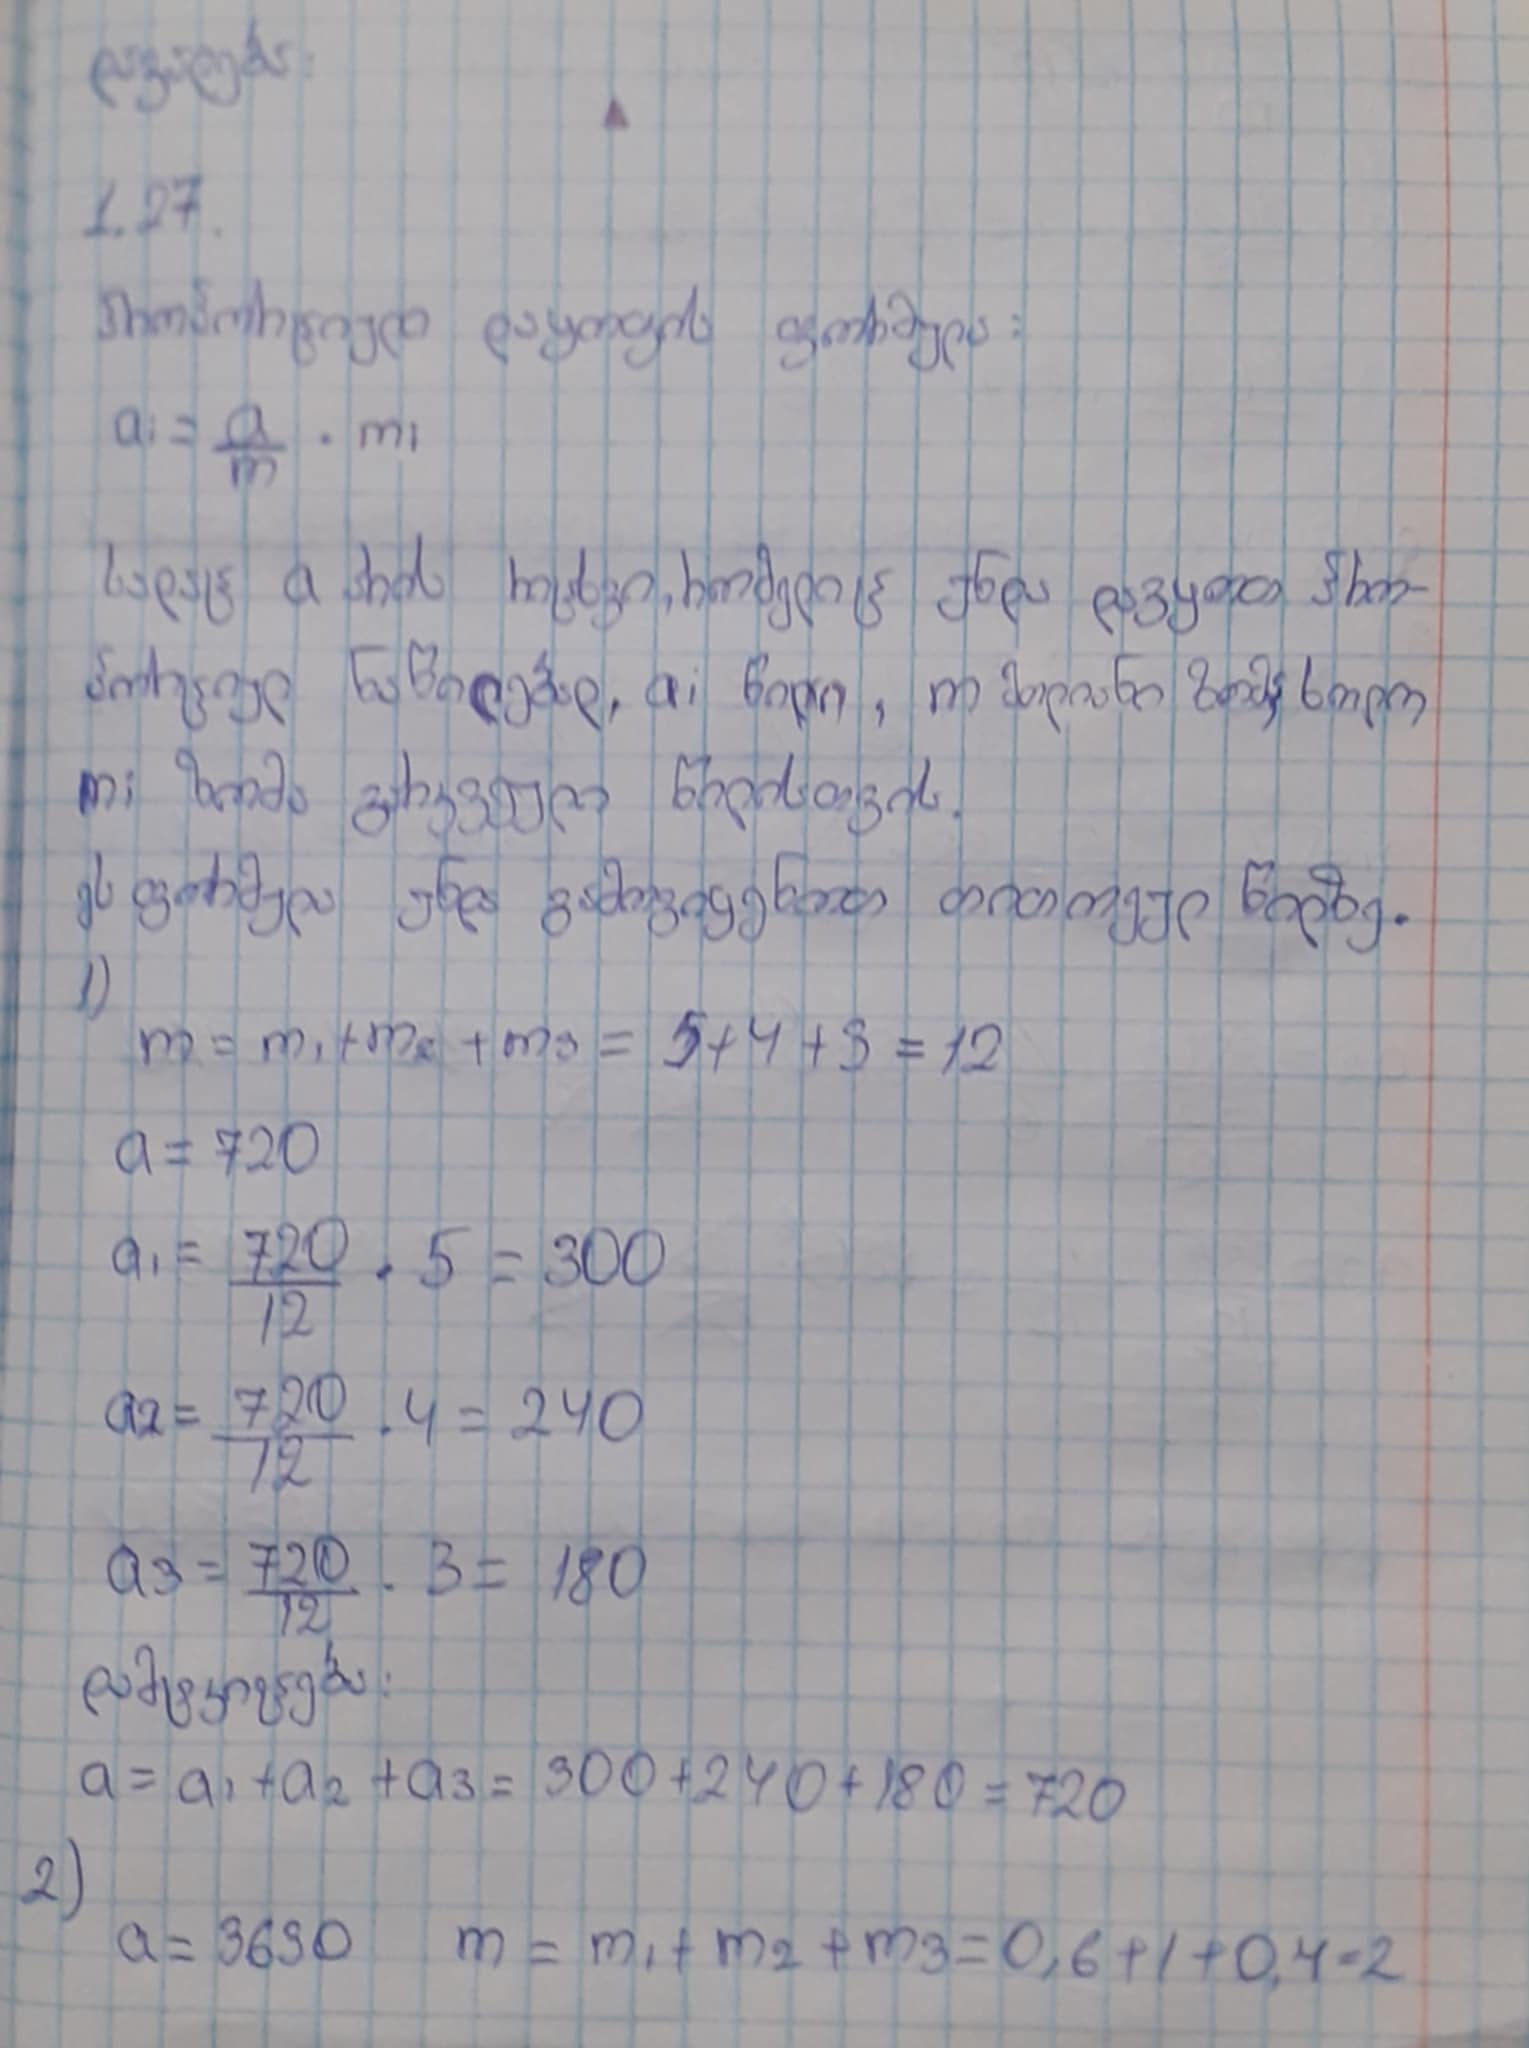 დავალება:
1.27.
პროპორციული დაყოფის ფორმულა:
ai = a/m · mi
სადაც a არის რიცხვი, რომელიც უნდა დავყოთ პრო-
პორციულ ნაწილებად, ai წილი, m მთლიანი ზომა, ხოლო
mi ზომა გარკვეული წილისთვის.
ეს ფორმულა უნდა გამოვიყენოთ თითოეულ წილზე.
1)
m = m1 + m2 + m3 = 5+4+3 = 12
a = 720
a1 = 720/12 · 5 = 300
a2 = 720/12 · 4 = 240
a3 = 720/12 · 3 = 180
დამტკიცება:
a = a1 + a2 + a3 = 300+240+180 = 720
2)
a = 3630 m = m1 + m2 + m3 = 0,6+1+0,4=2